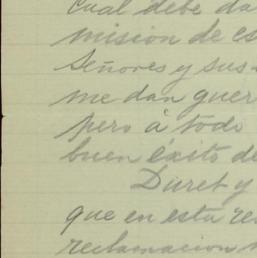 cual debe da
misión de es
Señores y sus
me dan guer
pero á todo
buen éxito de
Duret y
que en esta re
reclamacion